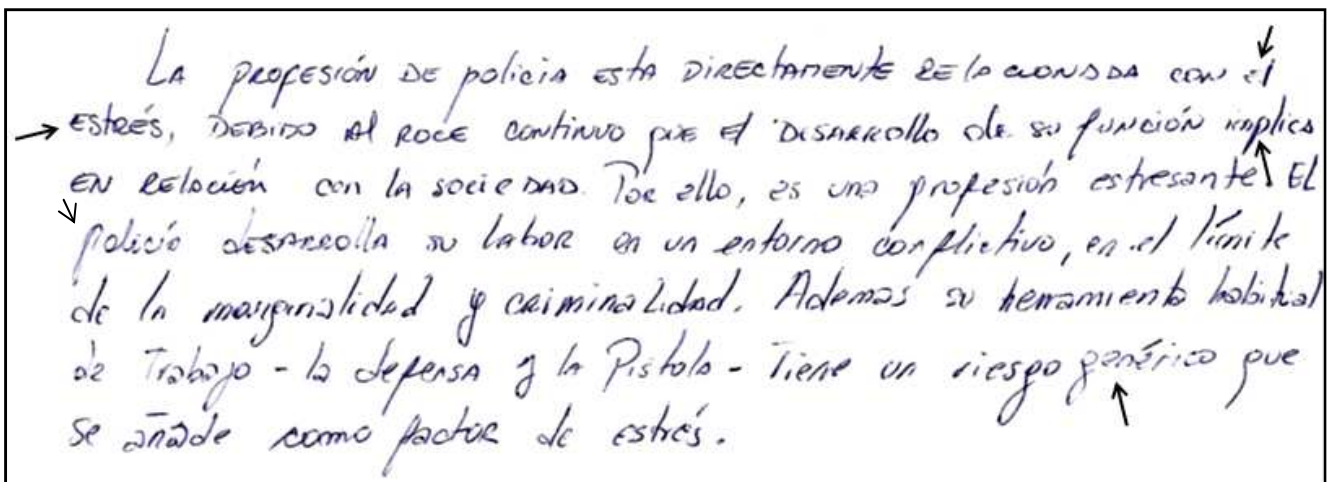 LA PROFESIÓN DE policia ESTA DIRECTAMENTE RELACIONADA CON el
ESTRÉS, DEBIDO Al ROCE CONTINUO QUE El DISARROllo de su función implica
EN RELACIÓN con la SOCIEDAD. Por ello, es una profesión estresante. El
Policía DESARROLLA su labor en un entorno conflictivo, en el límite
de la marginalidad y CRIMINALidad. Ademas su herramienta habitual
de Trabajo - la defensa y la Pistola - Tiene un riesgo genérico que
se añade como factor de estrés.